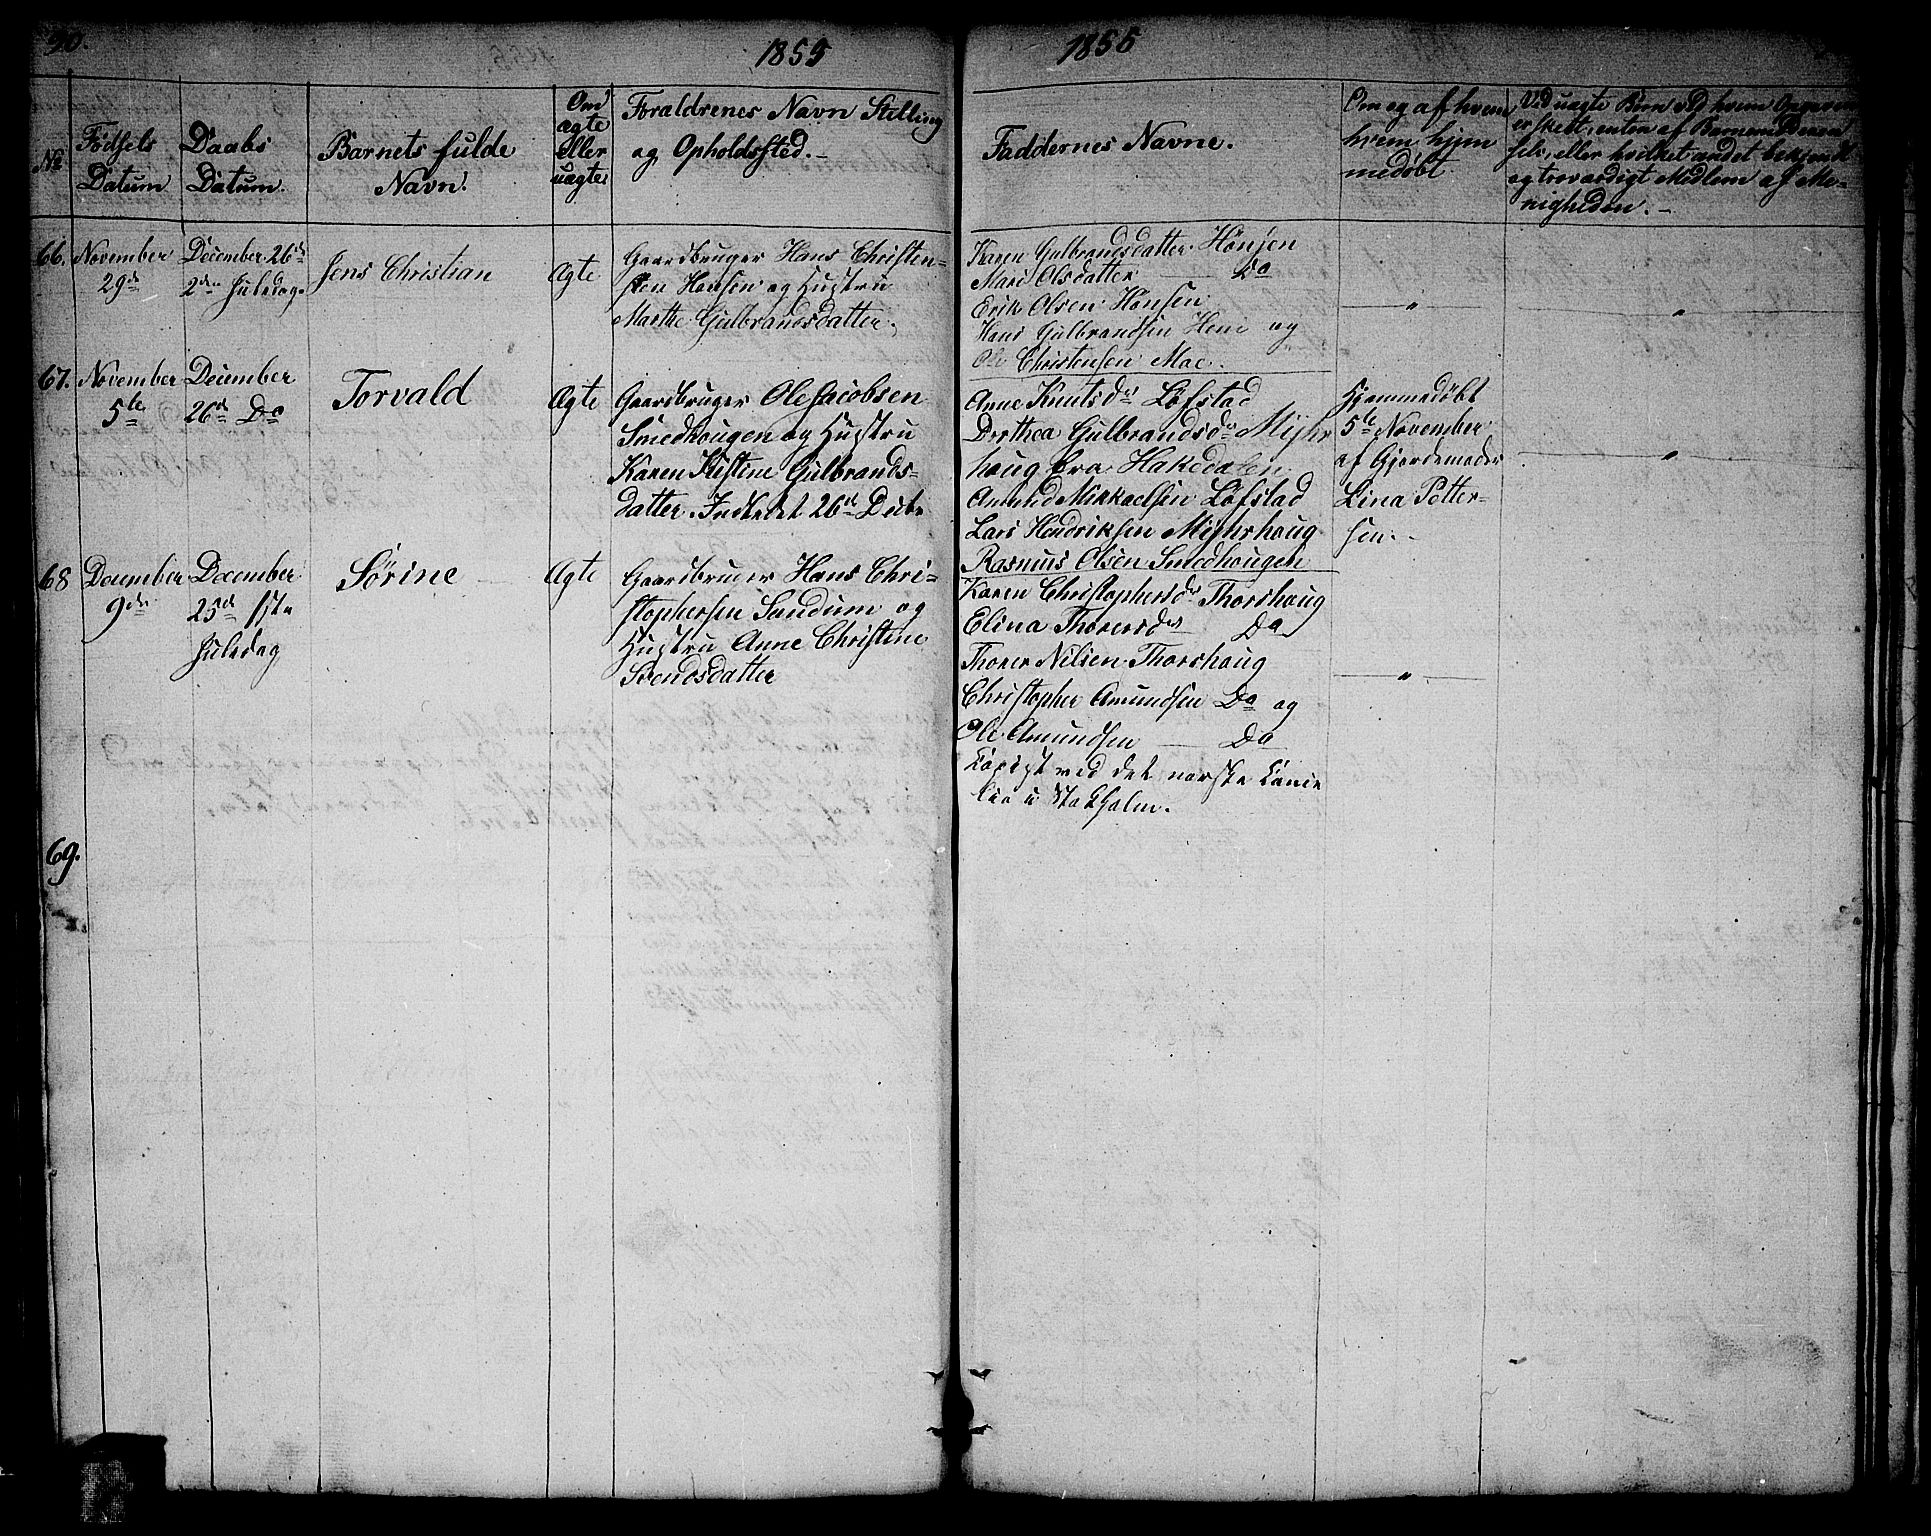 30.
1855
1855
No
Fødsels
Datum
Daabs
Datum.
Barnets fulde
Navn.
Om
ægte
eller
uægte
Foraldrenes Navn Stilling
og Opholdssted. -
Faddernes Navne.
Om og af hvem
hvem hjem
medøbt
Ved uægte Børn ved hvem Opgaven
er skeet, enten af Barnemoderen
selv, eller hvilket andet bekjendt
og troværdigt Medlem af Me-
nigheden. -
66.
November
29de
December 26de
2den Juledag.
Jens Christian
Ægte
Gaardbruger Hans Christen-
sen Hønsen og Hustru
Marthe Gulbrandsdatter.
Karen Gulbrandsdatter Hønsen
Mari Olsdatter Do
Erik Olsen Hønsen
Hans Gulbrandsen Heni og
Ole Christensen Moe.
"
"
67.
November
5te
December
26de Do
Torvald
Ægte
Gaardbruger Ole Jacobsen
Smedhougen og Hustru
Karen Kistine Gulbrands-
datter. Indledet 26de Decbr
Anne Knutsdr Løfstad
Dorthea Gulbrandsdr Myhr
houg fra Hakedalen
Amund Mikkaelsen Løfstad
Lars Hendriksen Myhrhoug
Rasmus Olsen Smedhougen
Hjemmedøbt
5te November
af Gjordemoder
Lina Petter-
sen. -
"
68
December
9de
December
25de 1ste
Juledag
Sørine
Ægte
Gaardbruger Hans Chri-
stophersen Sundum og
Hustru Anne Christine
Svendsdatter
Karen Christophersdr Thorshoug
Elina Thorersdr Do
Thorer Nilsen Thorshoug
Christopher Amundsen Do og
Ole Amundsen Do
Kopist ved det norske Cance
lie i Stokholm.
"
69.